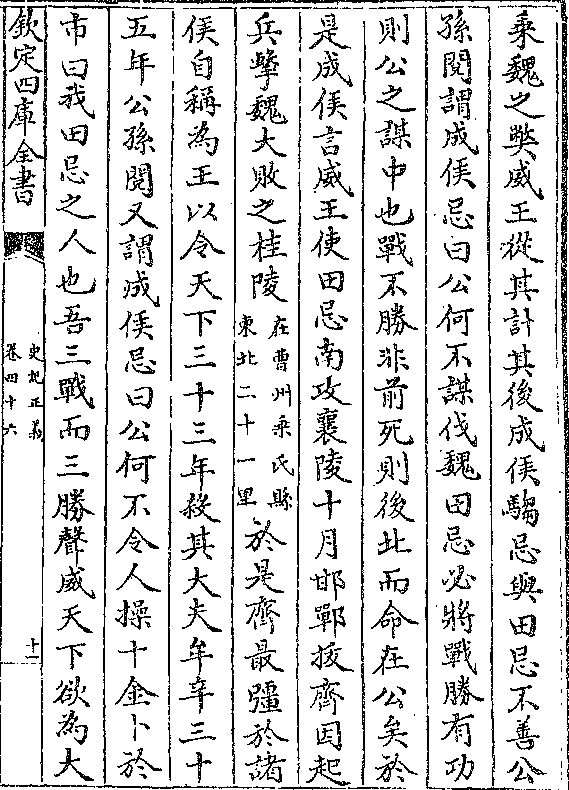 乘魏之弊威王從其計其後成侯騶忌與田忌不善公
孫閱謂成侯忌曰公何不謀伐魏田忌必將戰勝有功
則公之謀中也戰不勝非前死則後北而命在公矣於
是成侯言威王使田忌南攻襄陵十月邯鄲拔齊因起
兵擊魏大敗之桂陵在曹州乘氏縣東北二十一里於是齊最彊於諸
侯自稱為王以令天下三十三年殺其大夫牟辛三十
五年公孫閱又謂成侯忌曰公何不令人操十金卜於
市曰我田忌之人也吾三戰而三勝聲威天下欲為大
欽定四庫全書
史記正義
卷四十六
十一